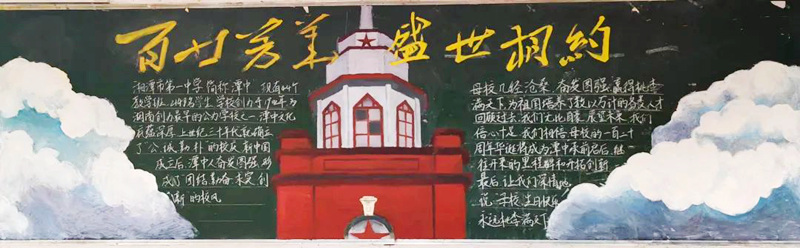 百廿芳华 盛世相约
湘潭市第一中学 简称潭中 现有44个
教学班 学生 学校创办于 年 为
湖南创办最早的公办学校之一 潭中文化
底蕴深厚 上世纪二十年代就确立
了公诚勤朴的校训 新中国
成立后 潭中人奋发图强 形
成了团结 勤奋 求实 创
新 的校风
母校几经沧桑 奋发图强 赢得桃李
满天下 为祖国培养了数以万计的各类人才
回顾过去 我们文化自豪 展望未来 我们
信心十足 我们相信母校的一百二十
周年华诞将成为潭中承前启后 继
往开来的里程碑和开拓创新
最后 让我们深情地
说 母校 生日快乐
永远桃李满天下